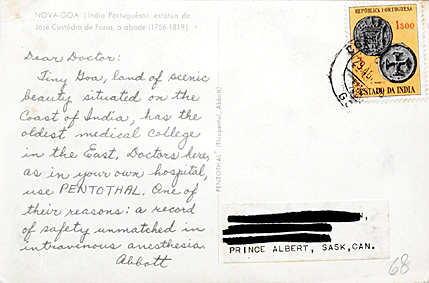 NOVA-GOA (India Portuguêsa): estátua de
José Custódio de Faria, o abade (1756-1819).
Dear Doctor:
Tiny Goa, land of scenic
beauty situated on the
Coast of India, has the
oldest medical college
in the East. Doctors here,
as in your own hospital,
use PENTOTHAL. One of
their reasons: a record
of safety unmatched in
intravenous anesthesia.
Abbott
PENTOTHAL® (Thiopental, Abbott)
REPÚBLICA PORTUGUESA
1$00
ESTADO DA INDIA
PRINCE ALBERT, SASK,CAN.
68